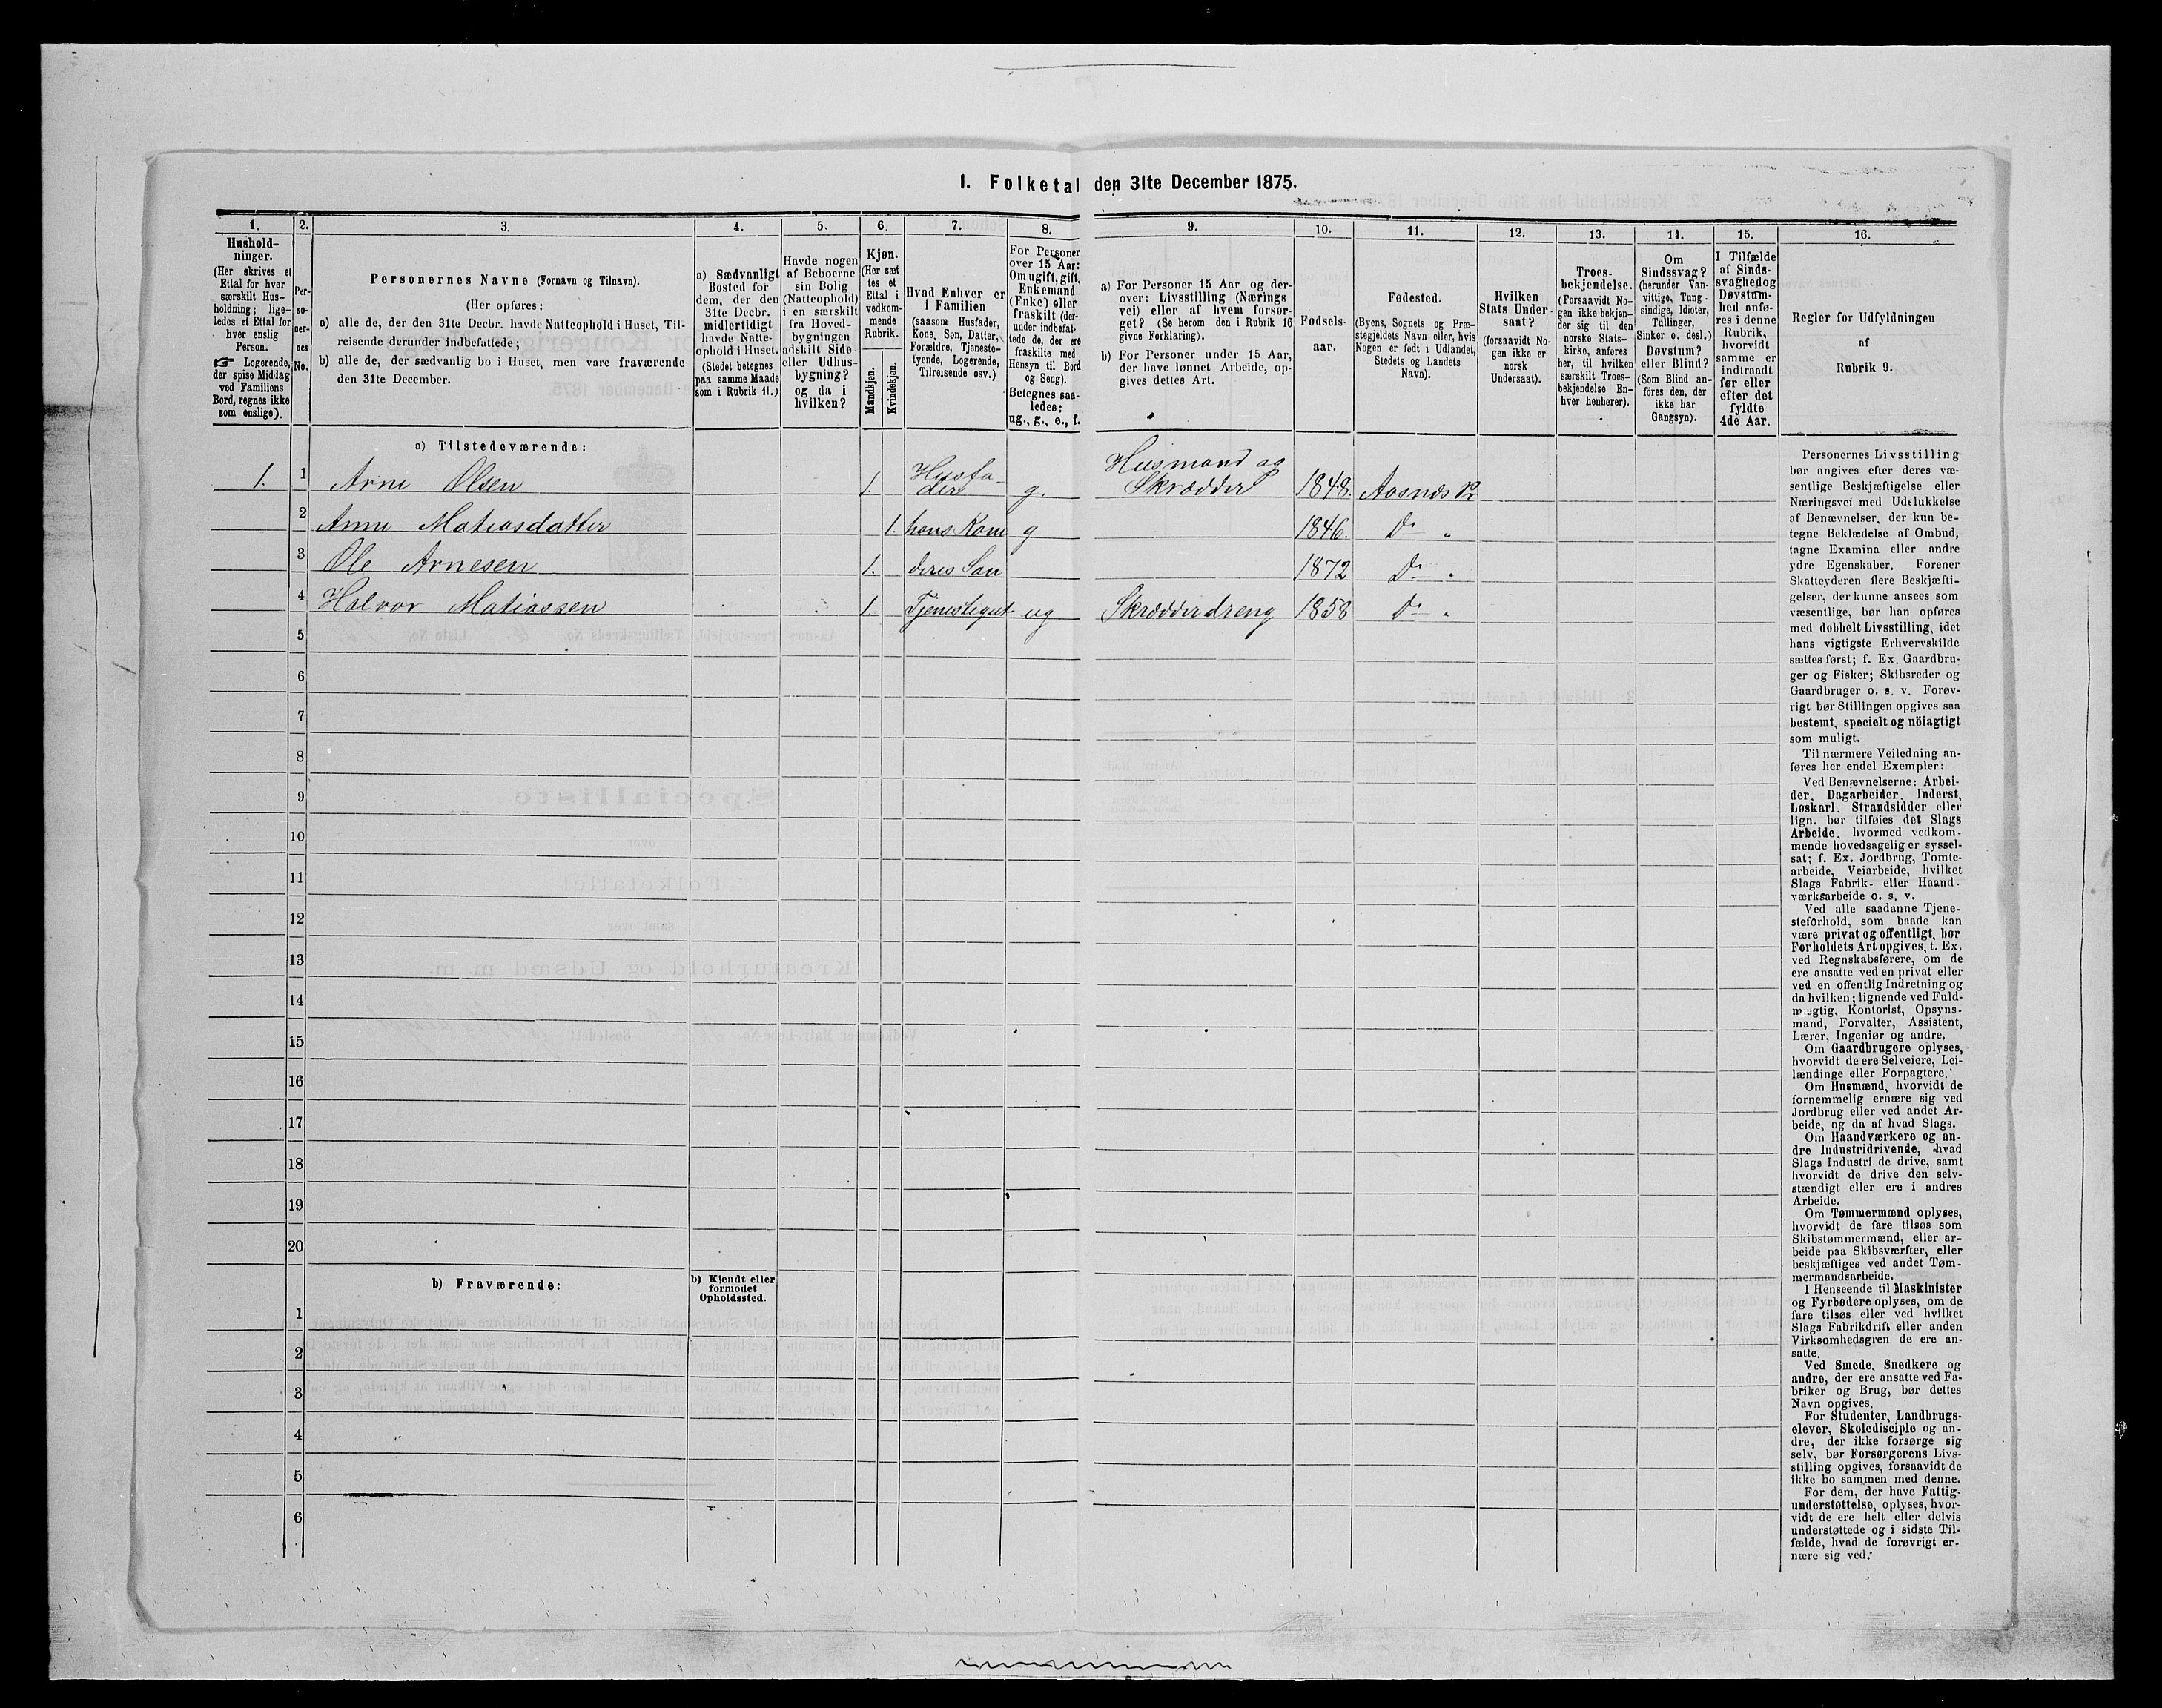 I. Folketal den 31te December 1875.
1. 2. 3. 4. 5. 6. 7. 8. 9. 10. 11. 12. 13. 14. 15. 16.
Hushold-
ninger.
(Her skrives et
Ettal for hver
særskilt Hus-
holdning; lige-
ledes et Ettal for
hver enslig
Person.
☞ Logerende,
der spise Middag
ved Familiens
Bord, regnes ikke
som enslige).
Per-
so-
ner-
nes
No.
Personernes Navne (Fornavn og Tilnavn).
(Her opføres:
a) alle de, der den 31te Decbr. havde Natteophold i Huset, Til-
reisende derunder indbefattede;
b) alle de, der sædvanlig bo i Huset, men vare fraværende
den 31te December.
a) Sædvanligt
Bosted for
dem, der den
31te Decbr.
midlertidigt
havde Natte-
ophold i Huset.
(Stedet betegnes
paa samme Maade
som i Rubrik 11.)
Havde nogen
af Beboerne
sin Bolig
(Natteophold)
i en særskilt
fra Hoved-
bygningen
adskilt Side-
eller Udhus-
bygning?
og da i
hvilken?
Kjøn.
(Her sæt
tes et
Ettal i
vedkom-
mende
Rubrik.
Mandkjøn.
Kvindekjøn.
Hvad Enhver er
i Familien
(saasom Husfader,
Kone, Søn, Datter,
Forældre, Tjeneste-
tyende, Logerende,
Tilreisende osv.)
For Personer
over 15 Aar:
Om ugift, gift,
Enkemand
(Enke) eller
fraskilt (der-
under indbefat-
tede de, der ere
fraskilte med
Hensyn til Bord
og Seng).
Betegnes saa-
ledes:
ug., g., e., f.
a) For Personer 15 Aar og der-
over: Livsstilling (Nærings
vei) eller af hvem forsør-
get? (Se herom den i Rubrik 16
givne Forklaring).
b) For Personer under 15 Aar,
der have lønnet Arbeide, op-
gives dettes Art.
Fødsels-
aar.
Fødested.
(Byens, Sognets og Præ-
stegjeldets Navn eller, hvis
Nogen er født i Udlandet,
Stedets og Landets
Navn).
Hvilken
Stats Under-
saat?
(forsaavidt No-
gen ikke er
norsk
Undersaat).
Troes-
bekjendelse.
(Forsaavidt No-
gen ikke bekjen-
der sig til den
norske Stats-
kirke, anføres
her, til hvilken
særskilt Troes-
bekjendelse En-
hver henhører).
Om
Sindssvag?
(herunder Van-
vittige, Tung-
sindige, Idioter,
Tullinger,
Sinker o. desl.)
Døvstum?
eller Blind?
(Som Blind an-
føres den, der
ikke har
Gangsyn).
I Tilfælde
af Sinds-
svaghed og
Døvstum-
hed anfø-
res i denne
Rubrik,
hvorvidt
samme er
indtraadt
før eller
efter det
fyldte
4de Aar.
Regler for Udfyldningen
af
Rubrik 9.
a) Tilstedeværende:
1. 1 Arne Olsen 1. Husfa-
der g. Husmand og
Skrædder 1848. Aasnes Pr
2 Anne Matiasdatter 1. hans Kone g 1846. Do "
3 Ole Arnesen 1. deres Søn 1872 Do "
4 Halvor Matiassen 1 Tjenestegut ug Skrædderdreng 1858 Do "
5
6
7
8
9
10
11
12
13
14
15
16
17
18
19
20
b) Fraværende:
b) Kjendt eller
formodet
Opholdssted.
1
2
3
4
5
6
Personernes Livsstilling
bør angives efter deres væ-
sentlige Beskjæftigelse eller
Næringsvei med Udelukkelse
af Benævnelser, der kun be-
tegne Beklædelse af Ombud,
tagne Examina eller andre
ydre Egenskaber. Forener
Skatteyderen flere Beskjæfti-
gelser, der kunne ansees som
væsentlige, bør han opføres
med dobbelt Livsstilling, idet
hans vigtigste Erhvervskilde
sættes først; f. Ex. Gaardbru-
ger og Fisker; Skibsreder og
Gaardbruger o. s. v. Forøv-
rigt bør Stillingen opgives saa
bestemt, specielt og nöiagtigt
som muligt.
Til nærmere Veiledning an-
føres her endel Exempler:
Ved Benævnelserne: Arbei-
der, Dagarbeider, Inderst,
Løskarl, Strandsidder eller
lign. bør tilføies det Slags
Arbeide, hvormed vedkom-
mende hovedsagelig er syssel-
sat; f. Ex. Jordbrug, Tomte-
arbeide, Veiarbeide, hvilket
Slags Fabrik- eller Haand-
værksarbeide o. s. v.
Ved alle saadanne Tjene-
steforhold, som baade kan
være privat og offentligt, bør
Forholdets Art opgives, t. Ex.
ved Regnskabsførere, om de
ere ansatte ved en privat eller
ved en offentlig Indretning og
da hvilken; lignende ved Fuld-
mægtig, Kontorist, Opsyns-
mand, Forvalter, Assistent,
Lærer, Ingeniør og andre.
Om Gaardbrugere oplyses,
hvorvidt de ere Selveiere, Lei-
lændinge eller Forpagtere.
Om Husmænd, hvorvidt de
fornemmelig ernære sig ved
Jordbrug eller ved andet Ar-
beide, og da af hvad Slags.
Om Haandværkere og an-
dre Industridrivende, hvad
Slags Industri de drive, samt
hvorvidt de drive den selv-
stændigt eller ere i andres
Arbeide.
Om Tømmermænd oplyses,
hvorvidt de fare tilsøs som
Skibstømmermænd, eller ar-
beide paa Skibsværfter, eller
beskjæftiges ved andet Tøm-
mermandsarbeide.
I Henseende til Maskinister
og Fyrbødere oplyses, om de
fare tilsøs eller ved hvilket
Slags Fabrikdrift eller anden
Virksomhedsgren de ere an-
satte.
Ved Smede, Snedkere og
andre, der ere ansatte ved Fa-
briker og Brug, bør dettes
Navn opgives.
For Studenter, Landbrugs-
elever, Skoledisciple og an-
dre, der ikke forsørge sig
selv, bør Forsørgerens Livs-
stilling opgives, forsaavidt de
ikke bo sammen med denne.
For dem, der have Fattig-
understøttelse, oplyses, hvor-
vidt de ere helt eller delvis
understøttede og i sidste Til-
fælde, hvad de forøvrigt er-
nære sig ved.